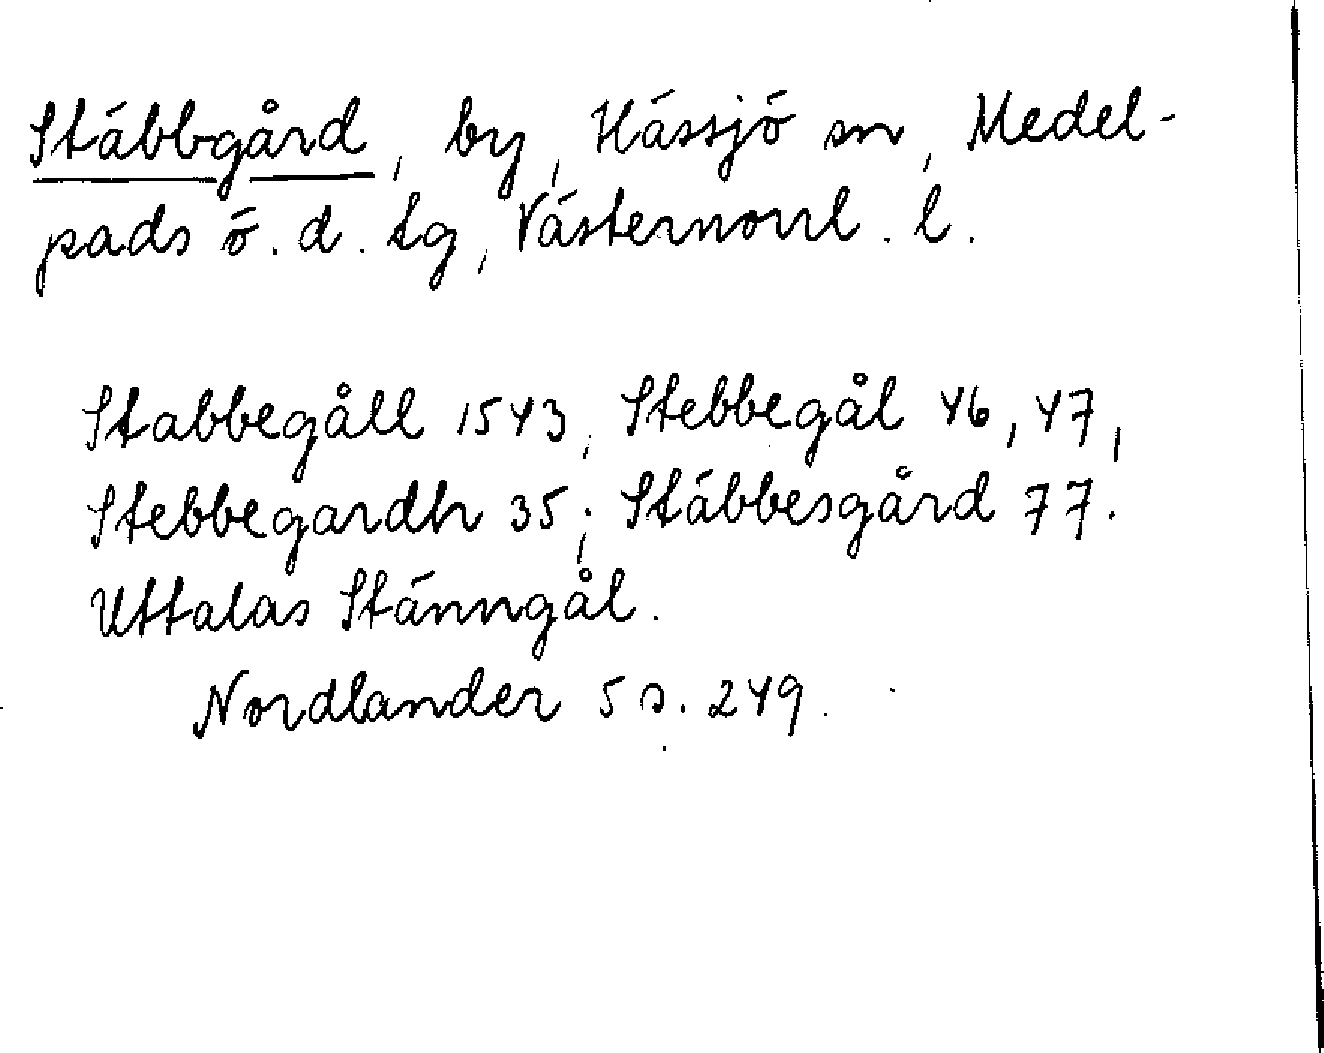 Stäbbgård, by, Hässjö sn, Medel-
pads ö. d. tg, Västernorrl. l.
Stabbegåll 1543, Stebbegål 46, 47,
Stebbegardh 35; Stäbbesgård 77.
Uttalas Stänngål.
Nordlander 5 s. 249.